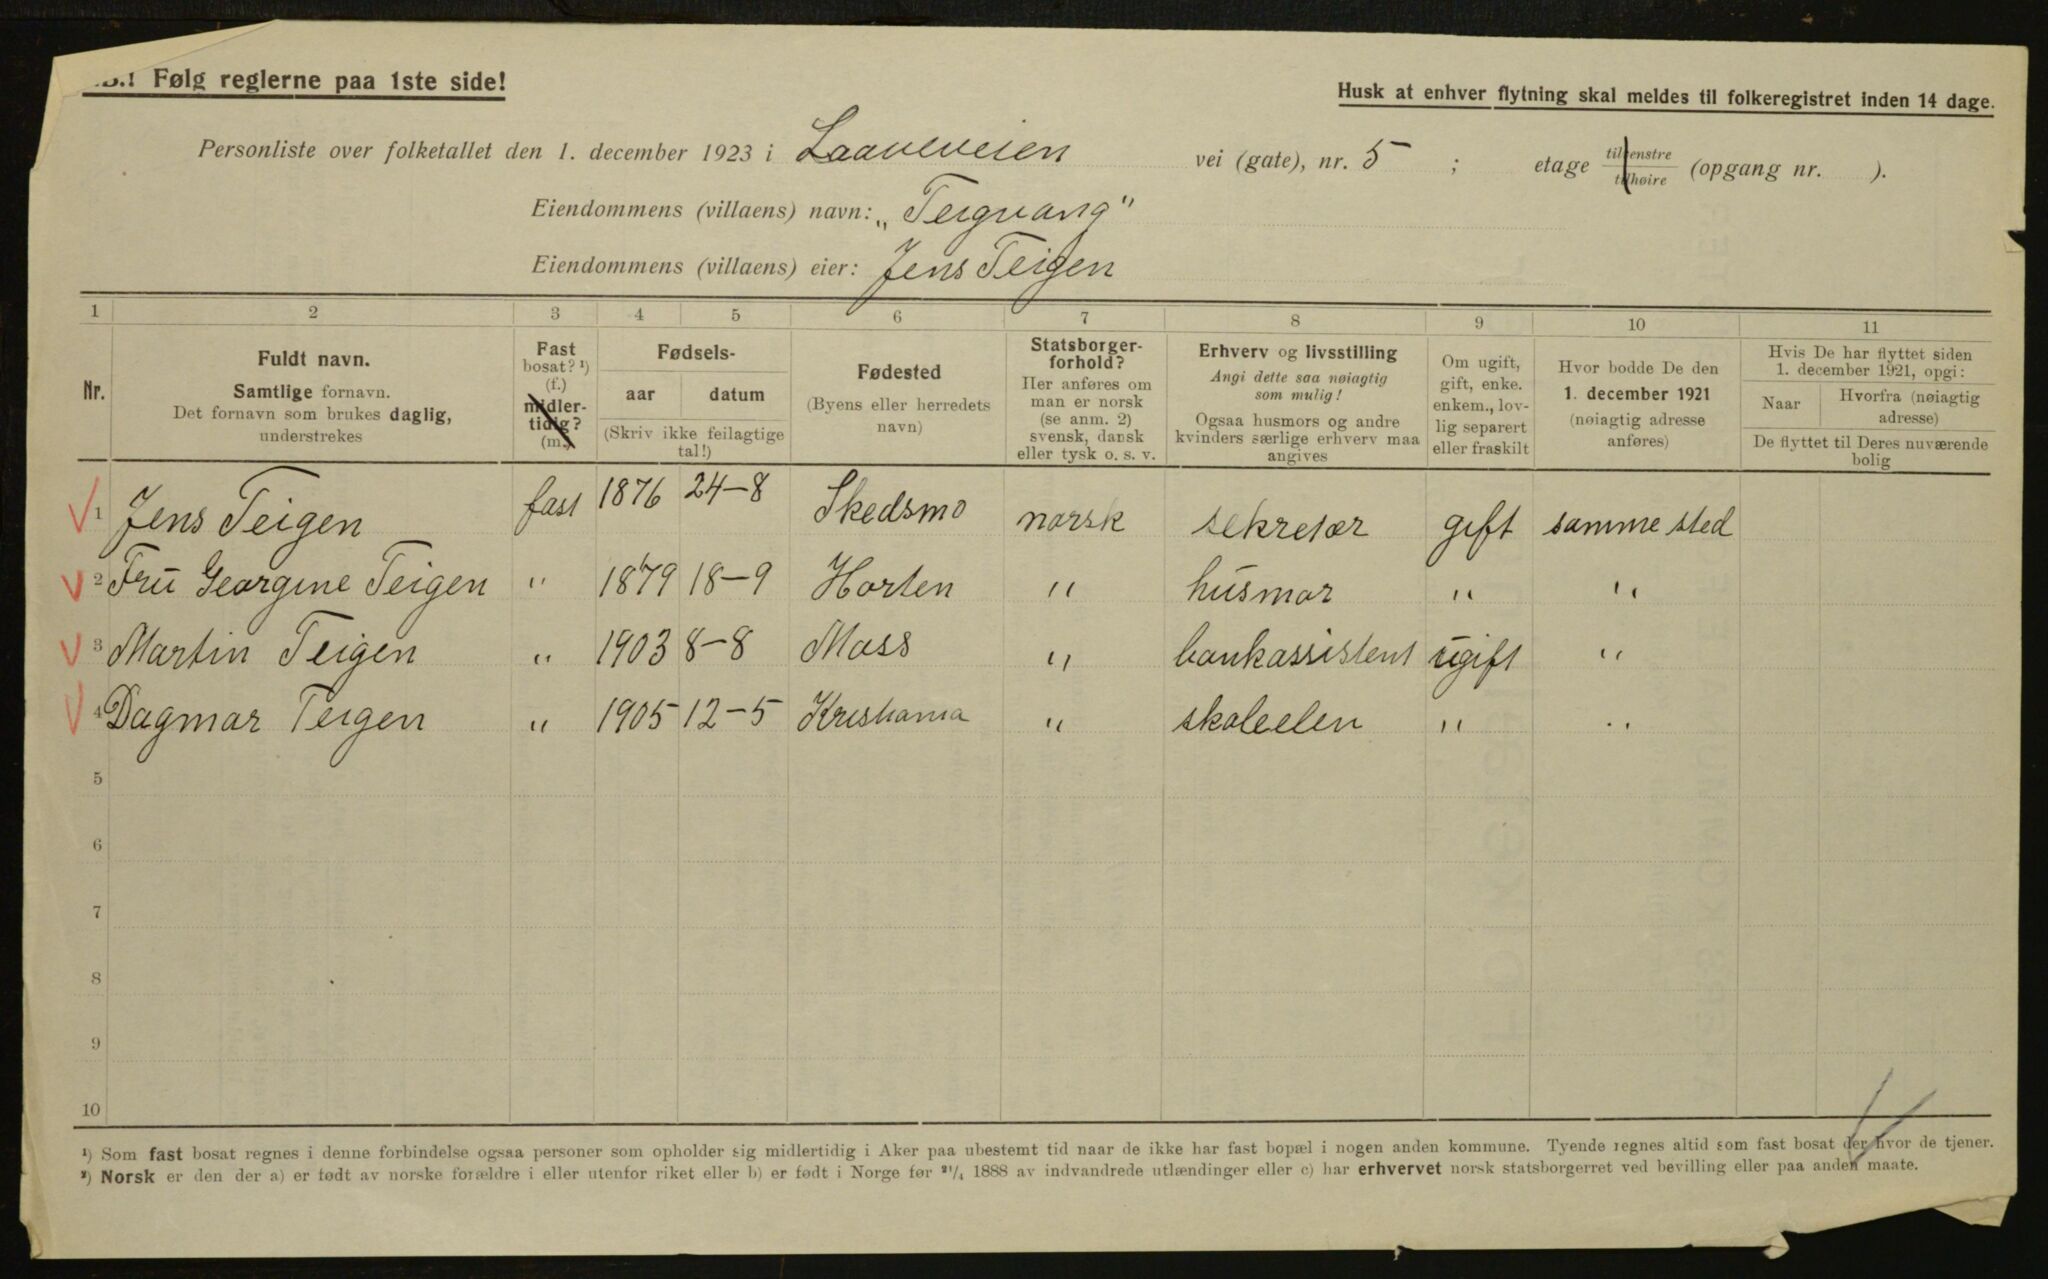 .B.! Følg reglerne paa 1ste side!
Husk at enhver flytning skal meldes til folkeregistret inden 14 dage.
Personliste over folketallet den 1. december 1923 i Laaveveien vei (gate), nr. 5 ; etage tilvenstre tilhøire (opgang nr. ).
Eiendommens (villaens) navn: „Teigvang"
Eiendommens (villaens) eier: Jens Teigen
1 2 3 4 5 6 7 8 9 10 11
Nr.
Fuldt navn.
Samtlige fornavn.
Det fornavn som brukes daglig,
understrekes
Fast
bosat? ¹)
(f.)
midler-
tidig?
(m.)
Fødsels-
aar datum
(Skriv ikke feilagtige
tal!)
Fødested
(Byens eller herredets
navn)
Statsborger-
forhold?
Her anføres om
man er norsk
(se anm. 2)
svensk, dansk
eller tysk o. s. v.
Erhverv og livsstilling
Angi dette saa nøiagtig
som mulig!
Ogsaa husmors og andre
kvinders særlige erhverv maa
angives
Om ugift,
gift, enke.
enkem., lov-
lig separert
eller fraskilt
Hvor bodde De den
1. december 1921
(nøiagtig adresse
anføres)
Hvis De har flyttet siden
1. december 1921, opgi:
Naar
Hvorfra (nøiagtig
adresse)
De flyttet til Deres nuværende
bolig
1 Jens Teigen fast 1876 24-8 Skedsmo norsk sekretær gift samme sted
2 Fru Georgine Teigen " 1879 18-9 Horten " husmor " "
3 Martin Teigen " 1903 8-8 Moss " bankassistent ugift "
4 Dagmar Teigen " 1905 12-5 Kristiania " skoleelev " "
5
6
7
8
9
10
¹) Som fast bosat regnes i denne forbindelse ogsaa personer som opholder sig midlertidig i Aker paa ubestemt tid naar de ikke har fast bopæl i nogen anden kommune. Tyende regnes altid som fast bosat der hvor de tjener.
²) Norsk er den der a) er født av norske forældre i eller utenfor riket eller b) er født i Norge før ²¹/₄ 1888 av indvandrede utlændinger eller c) har erhvervet norsk statsborgerret ved bevilling eller paa anden maate.